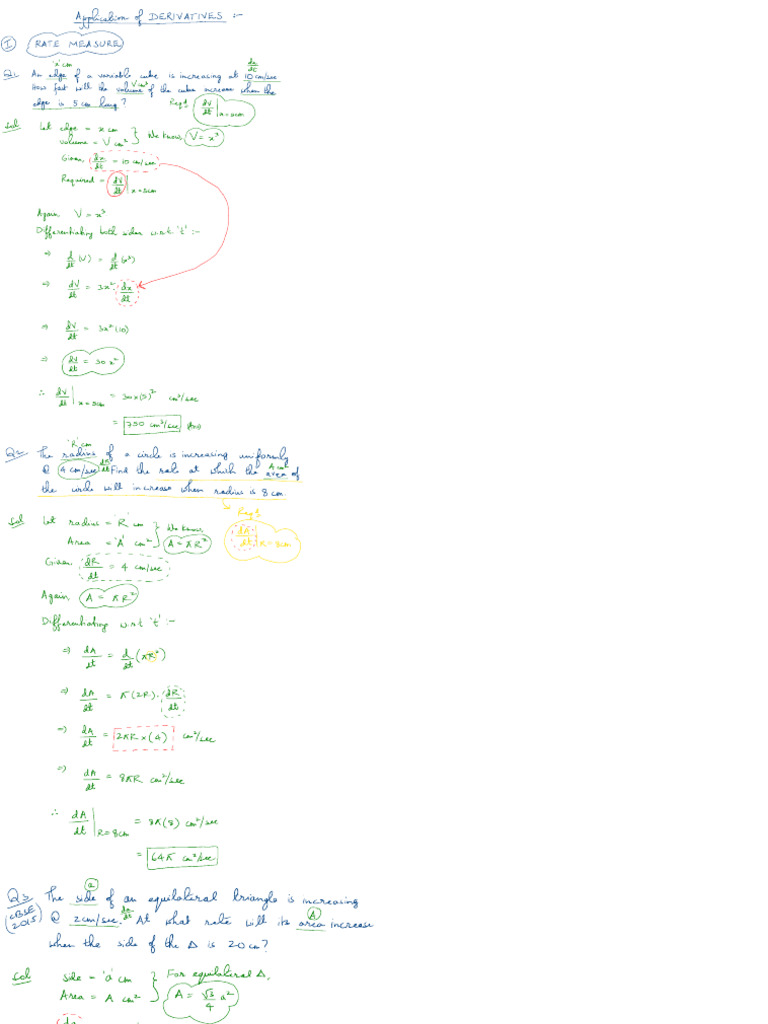 Application of DERIVATIVES :-
I RATE MEASURE
'x' cm dx/dt
Q1. An edge of a variable cube is increasing at 10 cm/sec
How fast will the volume of the cube increase when the V cm³
edge is 5 cm long? Reqd dV/dt]x=5cm
Sol Let edge = x cm } We know, V = x³
volume = V cm²
Given, dx/dt = 10 cm/sec
Required = dV/dt]x=5cm
Again, V = x³
Differentiating both sides w.r.t 't' :-
⇒ d/dt (V) = d/dt (x³)
⇒ dV/dt = 3x² · dx/dt
⇒ dV/dt = 3x² (10)
⇒ dV/dt = 30x²
∴ dV/dt]x=5cm = 30×(5)² cm³/sec
= 750 cm³/sec
'R' cm
Q2 The radius of a circle is increasing uniformly
@ 4 cm/sec dR/dt Find the rate at which the area of A cm²
the circle will increase when radius is 8 cm.
Reqd
dA/dt]R=8cm
Sol Let radius = 'R' cm } We know
Area = 'A' cm² A = πR²
Given, dR/dt = 4 cm/sec
Again, A = πR²
Differentiating w.r.t 't' :-
⇒ dA/dt = d/dt (πR²)
⇒ dA/dt = π(2R) · dR/dt
⇒ dA/dt = 2πR × (4) cm²/sec
⇒ dA/dt = 8πR cm²/sec
∴ dA/dt]R=8cm = 8π(8) cm²/sec
= 64π cm²/sec
a
Q3 The side of an equilateral triangle is increasing
(CBSE 2015) @ 2cm/sec. da/dt At what rate will its area increase A
when the side of the Δ is 20 cm?
Sol side = 'a' cm } For equilateral Δ,
Area = A cm² A = √3/4 a²